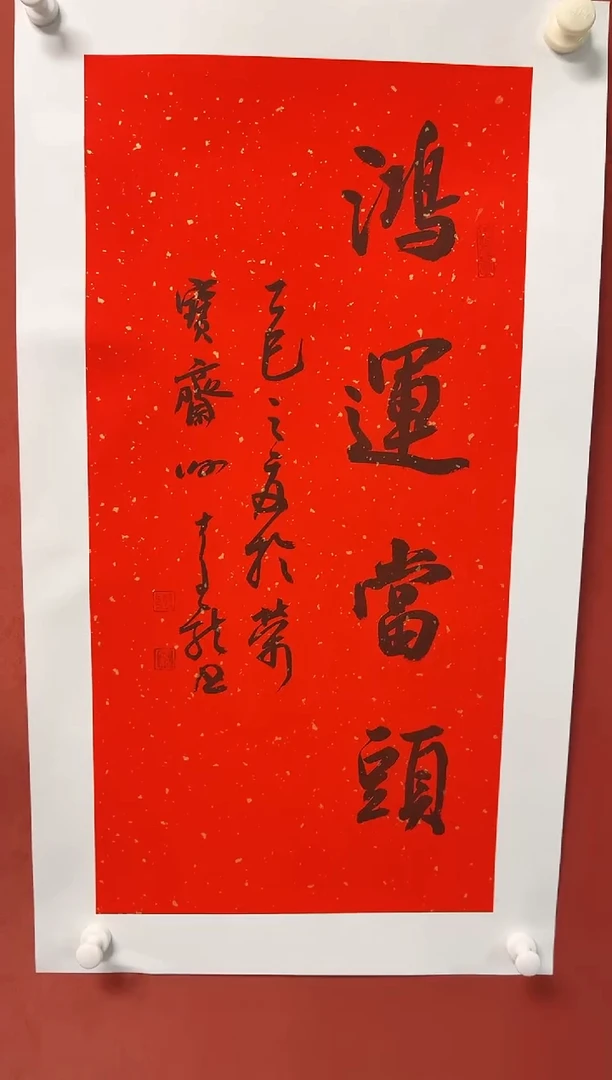 鴻運當頭
乙巳之夏於榮
寶齋